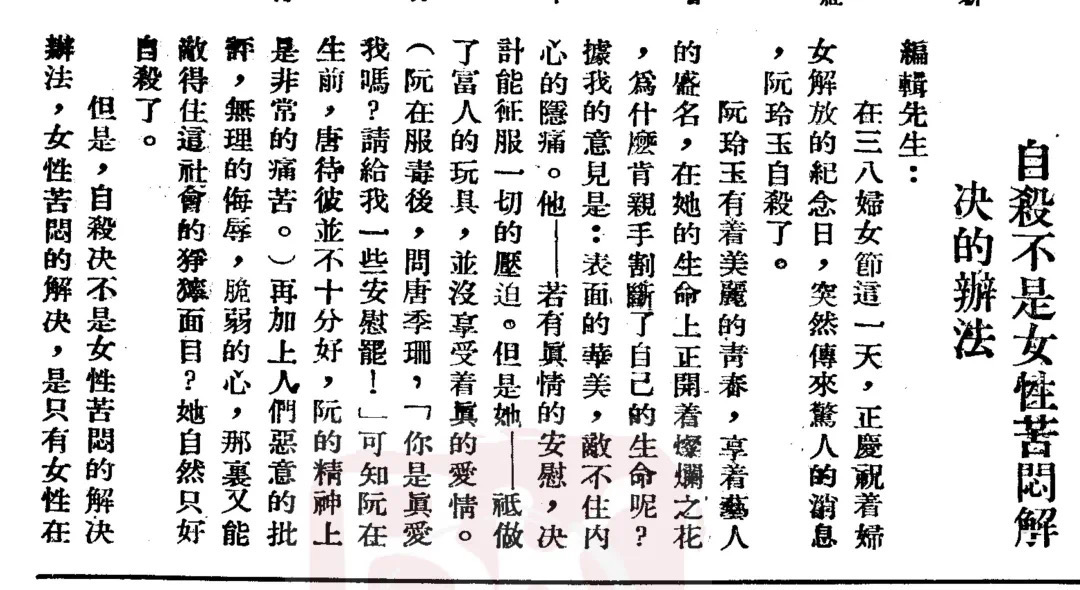 自殺不是女性苦悶解
決的辦法
編輯先生：
在三八婦女節這一天，正慶祝着婦
女解放的紀念日，突然傳來驚人的消息
，阮玲玉自殺了。
阮玲玉有着美麗的靑春，享着藝人
的盛名，在她的生命上正開着燦爛之花
，爲什麽肯親手割斷了自己的生命呢？
據我的意見是：表面的華美，敵不住內
心的隱痛。他——若有眞情的安慰，决
計能征服一切的壓迫。但是她——祗做
了富人的玩具，並沒享受着眞的愛情。
（阮在服毒後，問唐季珊，「你是眞愛
我嗎？請給我一些安慰罷！」可知阮在
生前，唐待彼並不十分好，阮的精神上
是非常的痛苦。）再加上人們惡意的批
評，無理的侮辱，脆弱的心，那裏又能
敵得住這社會的猙獰面目？她自然只好
自殺了。
但是，自殺决不是女性苦悶的解决
辦法，女性苦悶的解决，是只有女性在